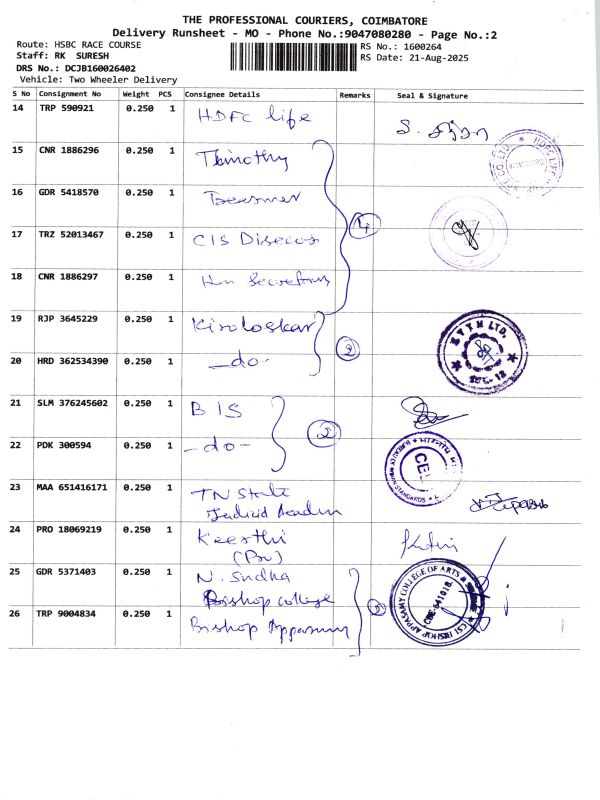 THE PROFESSIONAL COURIERS, COIMBATORE
Delivery Runsheet - MO - Phone No.:9047080280 - Page No.:2
Route: HSBC RACE COURSE
RS No.: 1600264
Staff: RK SURESH
RS Date: 21-Aug-2025
DRS No.: DCJB160026402
Vehicle: Two Wheeler Delivery
S No Consignment No Weight PCS Consignee Details Remarks Seal & Signature
14 TRP 590921 0.250 1 HDFC life
15 CNR 1886296 0.250 1 Timothy
16 GDR 5418570 0.250 1
17 TRZ 52013467 0.250 1 CIS
4
18 CNR 1886297 0.250 1 Hn Secretary
19 RJP 3645229 0.250 1 Kiroloskar
2
20 HRD 362534390 0.250 1 -do-
21 SLM 376245602 0.250 1 BIS
2
22 PDK 300594 0.250 1 -do-
23 MAA 651416171 0.250 1 TN State
24 PRO 18069219 0.250 1 Keerthi
25 GDR 5371403 0.250 1 N. Sudha
Bishop college
CSI BISHOP APPASAMY COLLEGE OF ARTS &
CBE-641018
2
26 TRP 9004834 0.250 1 Bishop Appasamy